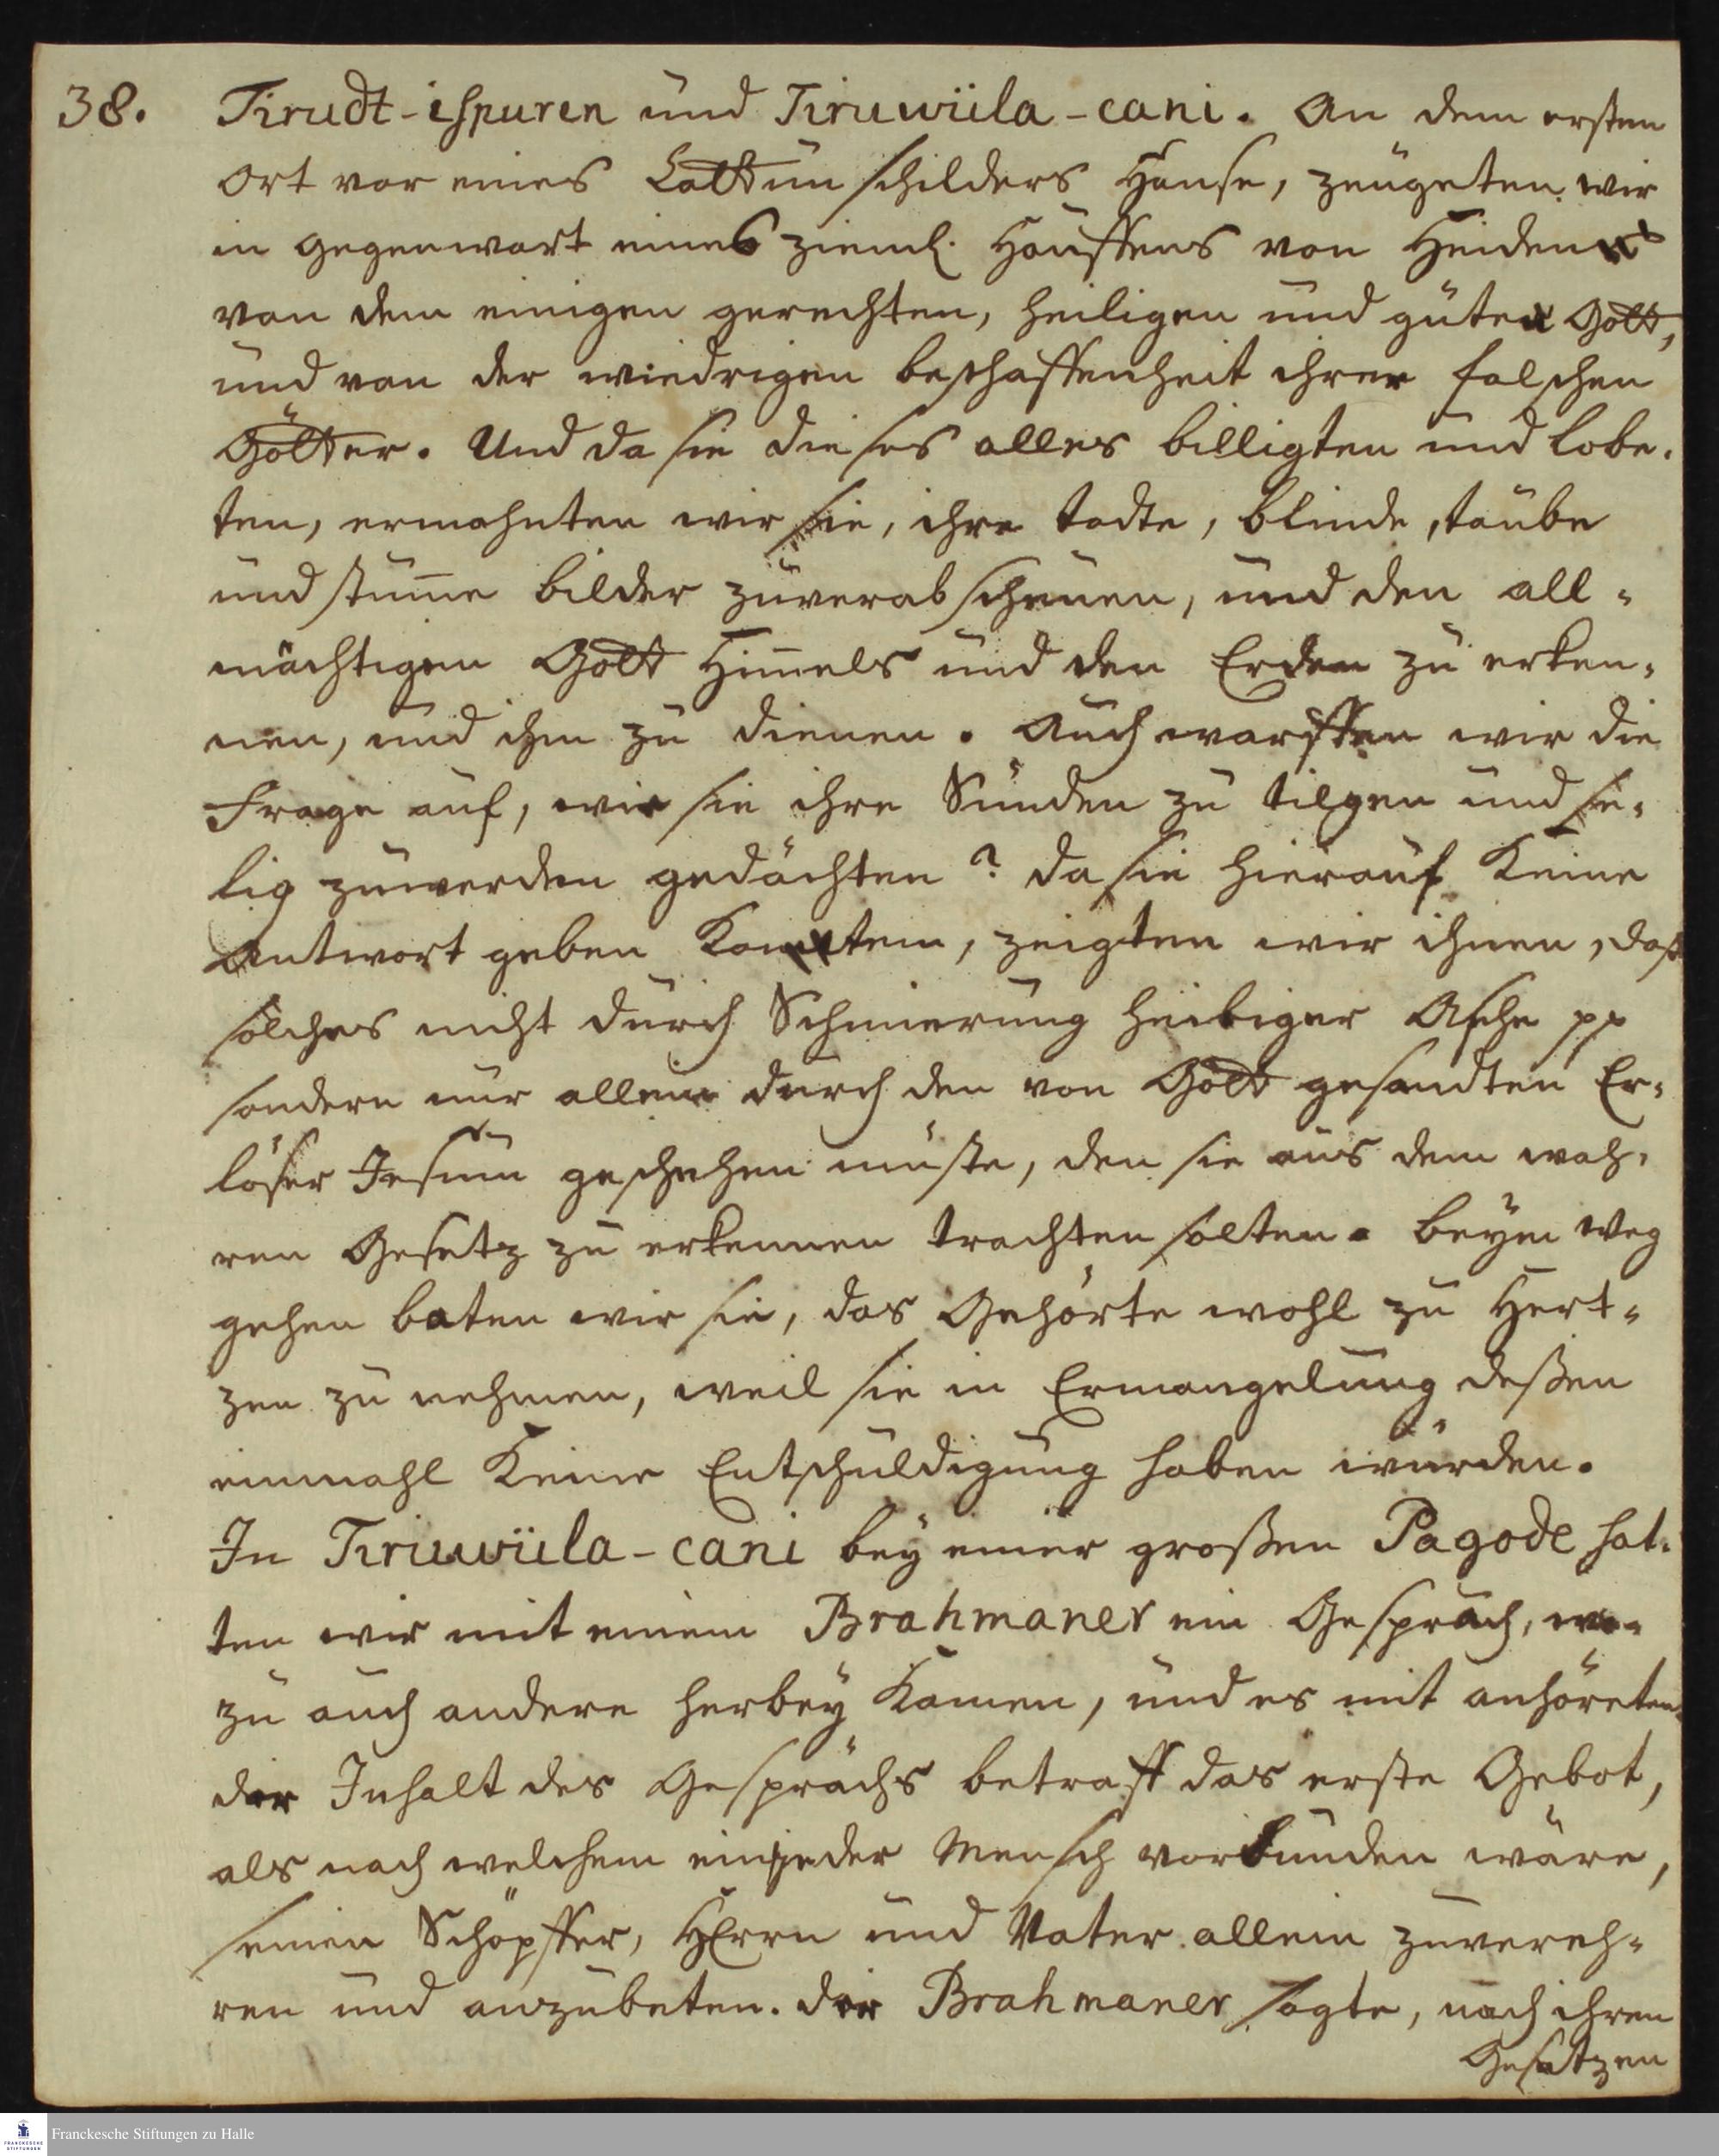 38. Tirudt-ispuren und Tiruwüla-cani. An dem ersten
Ort vor eines Cattun schilders Hause, zeugeten wir
in gegenwart eines zieml. Hauffens von Heiden
von dem einigen gerechten, heiligen und guten Gott,
und von der wiedrigen beschaffenheit ihrer falschen
Götter. Und da sie dieses alles billigten und lobe-
ten, ermahnten wir sie, ihre todte, blinde, taube
und stum̄e bilder zuverabscheuen, und den all-
mächtigen Gott Him̄els und der Erden zu erken-
nen, und ihm zu dienen. Auch warffen wir die
Frage auf, wie sie ihre Sünden zu tilgen und se-
lig zuwerden gedächten? da sie hierauf keine
Antwort geben konten, zeigten wir ihnen, daß
solches nicht durch Schmierung heibiger Asche pp
sondern nur allein durch den von Gott gesandten Er-
löser Jesum geschehen müste, den sie aus dem wah-
ren Gesetz zu erkennen trachten solten. beym Weg
gehen baten wir sie, das Gehörte wohl zu Hert-
zen zu nehmen, weil sie in Ermangelung deßen
einmahl keine Entschuldigung haben würden.
In Tiruwüla-cani bey einer großen Pagode hat-
ten wir mit einem Brahmaner ein Gespräch, wo-
zu auch andere herbey kamen, und es mit anhöreten.
der Inhalt des Gesprächs betraff das erste Gebot,
als nach welchem ein jeder Mensch verbunden wäre,
seinen Schöpffer, HErrn und Vater allein zuvereh-
ren und anzubeten. der Brahmaner sagte, nach ihren
Gesetzen
Franckesche Stiftungen zu Halle
FRANCKESCHE
STIFTUNGEN